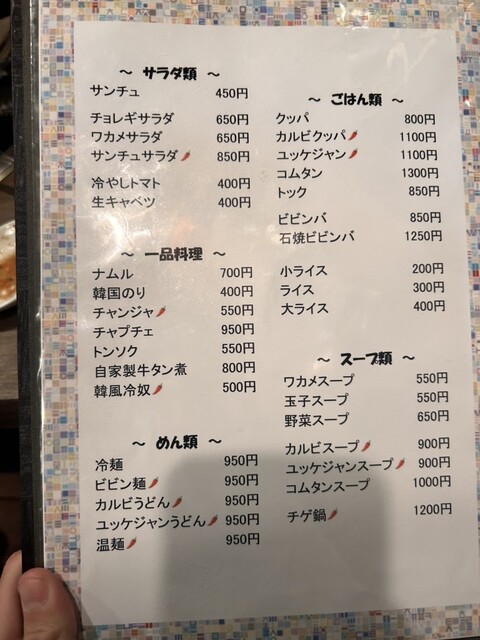 ～ サラダ類 ～
サンチュ 450円
チョレギサラダ 650円
ワカメサラダ 650円
サンチュサラダ 850円
冷やしトマト 400円
生キャベツ 400円
～ 一品料理 ～
ナムル 700円
韓国のり 400円
チャンジャ 550円
チャプチェ 950円
トンソク 550円
自家製牛タン煮 800円
韓風冷奴 500円
～ めん類 ～
冷麺 950円
ビビン麺 950円
カルビうどん 950円
ユッケジャンうどん 950円
温麺 950円
～ ごはん類 ～
クッパ 800円
カルビクッパ 1100円
ユッケジャン 1100円
コムタン 1300円
トック 850円
ビビンバ 850円
石焼ビビンバ 1250円
小ライス 200円
ライス 300円
大ライス 400円
～ スープ類 ～
ワカメスープ 550円
玉子スープ 550円
野菜スープ 650円
カルビスープ 900円
ユッケジャンスープ 900円
コムタンスープ 1000円
チゲ鍋 1200円